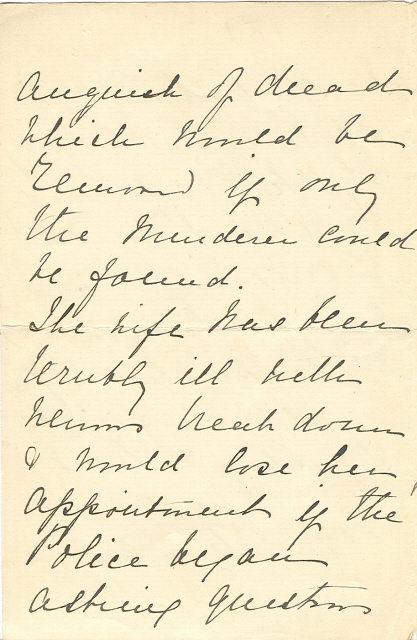 anguish of dread
which would be
removed if only
the murderer could
be found.
The wife has been
terribly ill with
nervous break down
& would lose her
appointment if the
Police began
asking questions